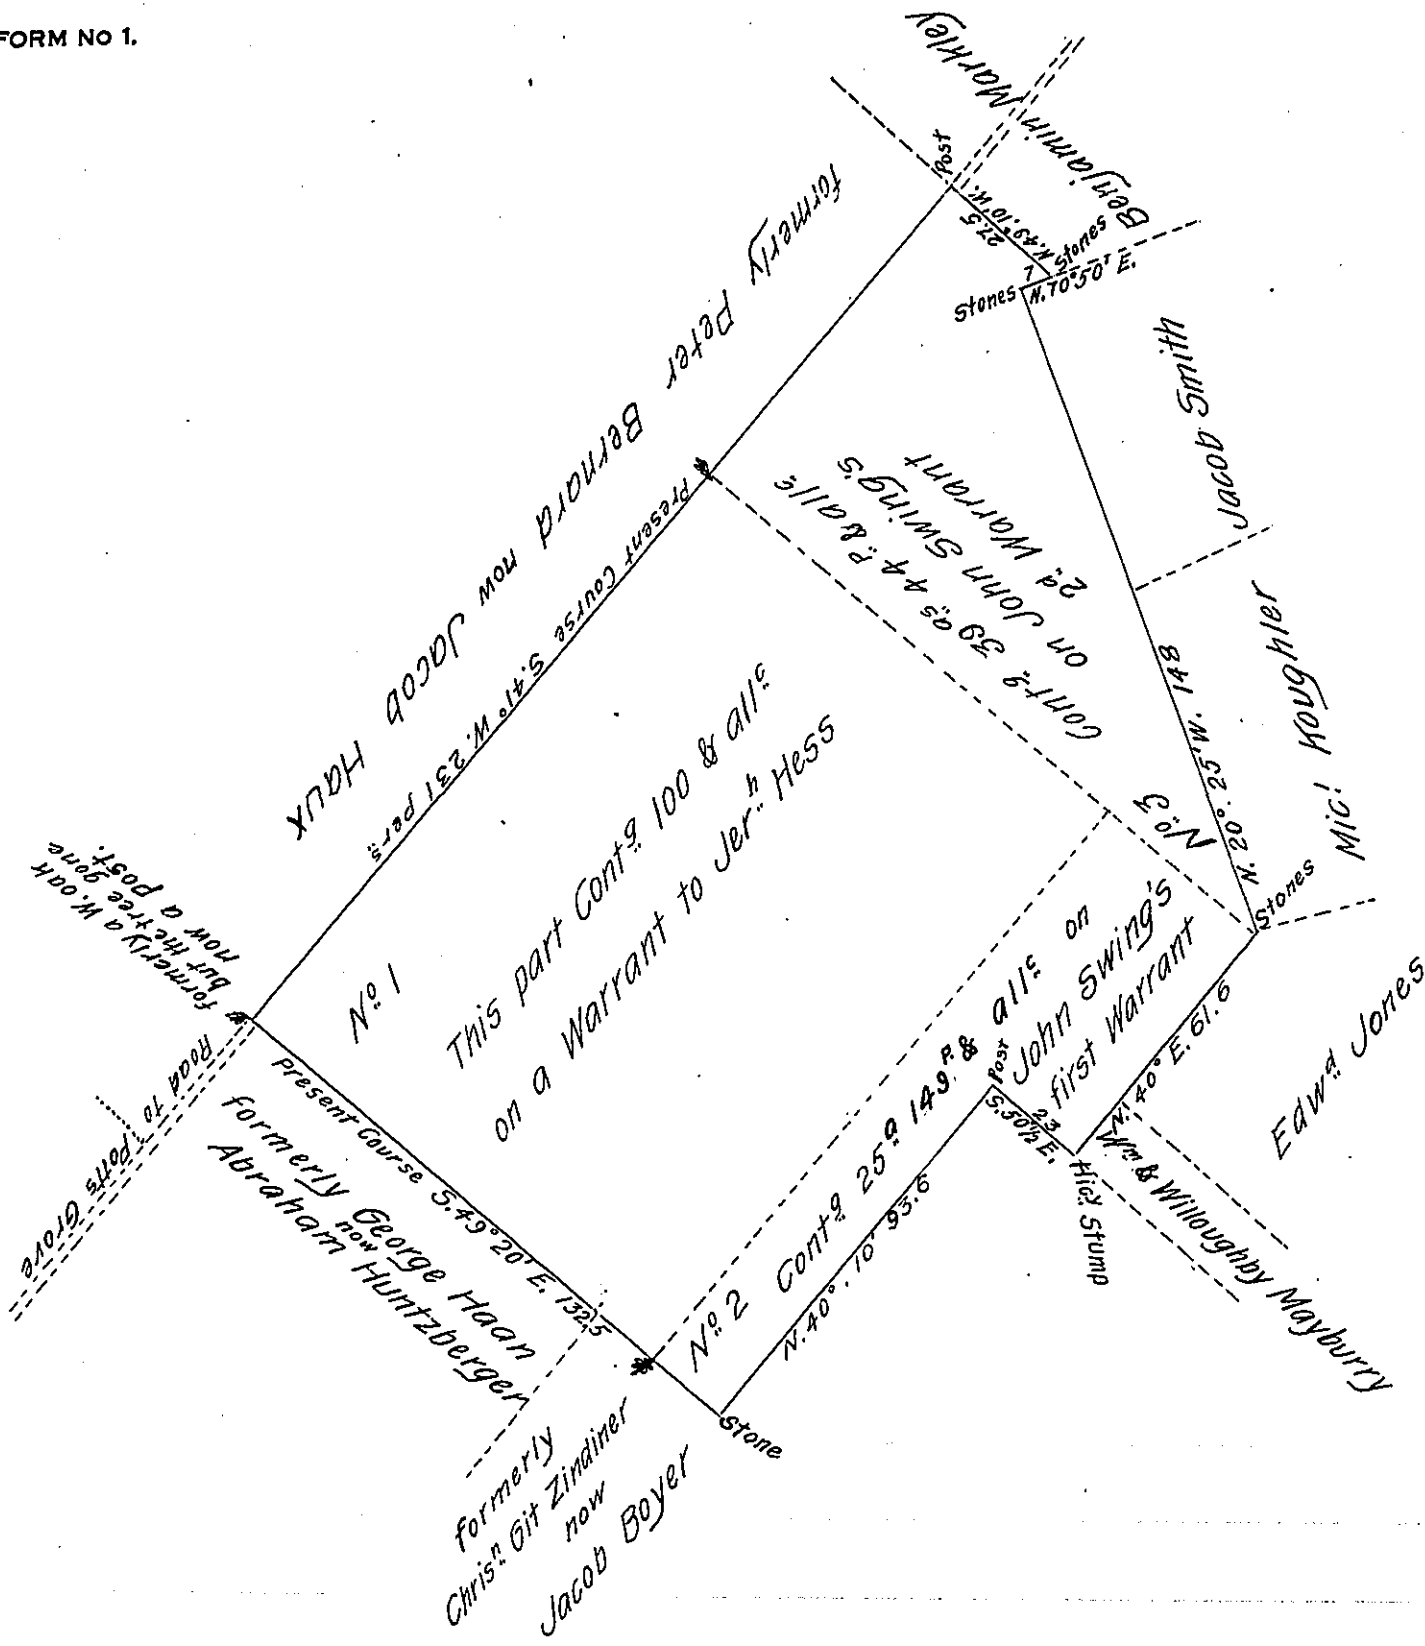 FORM NO 1.
Benjamin Markley
Post
N. 49°. 10' W.
27.5
Stones
7
Stones
N. 70° 50' E.
formerly Peter Bernard now Jacob Haux
Present Course S. 41° W. 231 pers.
Jacob Smith
Cont.g 39 a.s 44 P. & all.c
on John Swing's
2.d Warrant
No. 3
N. 20°. 25' W. 148
Mic.l Koughler
Stones
formerly a W. oak
but the tree gone
now a post.
Road to Potts Grove
No. 1
This part Cont.g 100 & all.c
on a Warrant to Jer.h Hess
Present Course S. 49° 20' E. 132.5
formerly George Haan
now
Abraham Huntzberger
No. 2 Cont.g 25 a 149 P. & all.c on
John Swing's
first Warrant
Post
S. 50½ E.
23
N. 40° E. 61.6
Edw.d Jones
Wm. & Willoughby Mayburry
Hic.y Stump
N. 40°. 10' 93.6
Stone
formerly
Chris.n Git Zindiner
now
Jacob Boyer